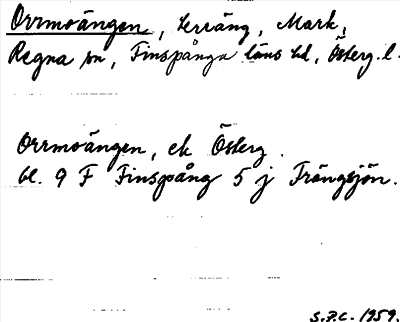 Orrmoängen, terräng, Mark,
Regna sn, Finspånga läns hd, Österg.l.
Orrmoängen, ek Österg.
bl. 9 F Finspång 5 j Trängsjön.
S.P.C. 1959.